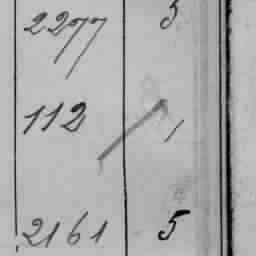 2277 3
112 1
2161 5